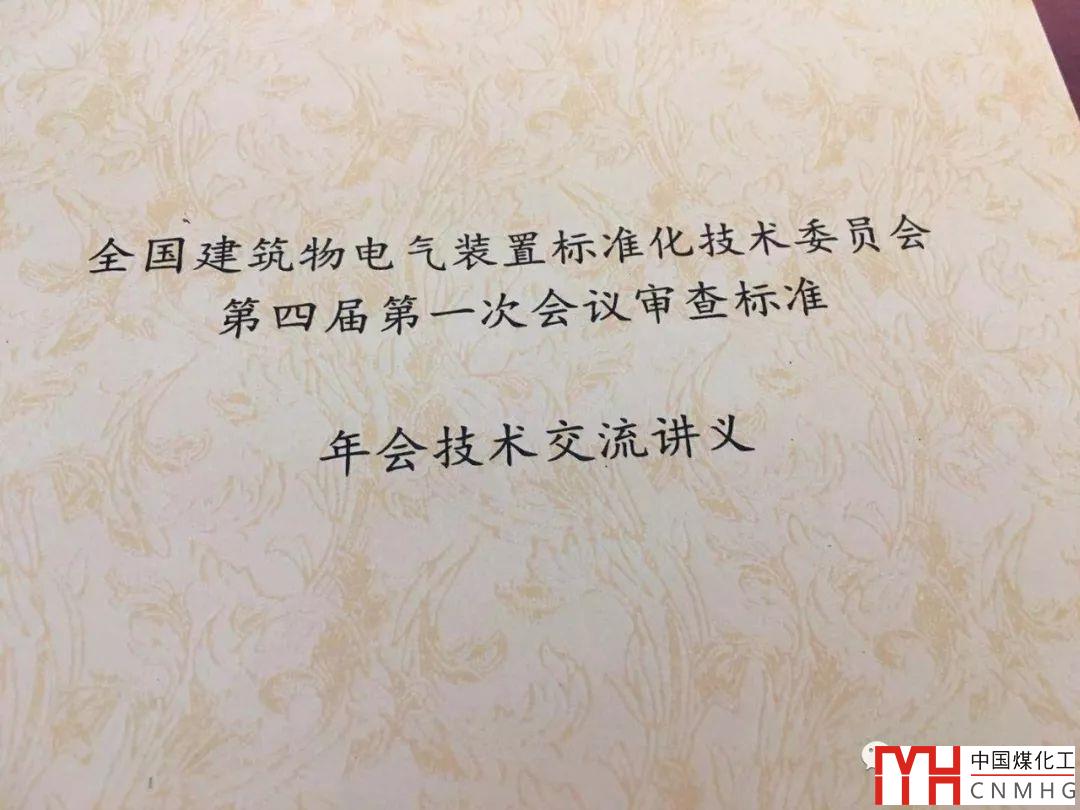 全国建筑物电气装置标准化技术委员会
第四届第一次会议审查标准
年会技术交流讲义
MH
中国煤化工
CNMHG